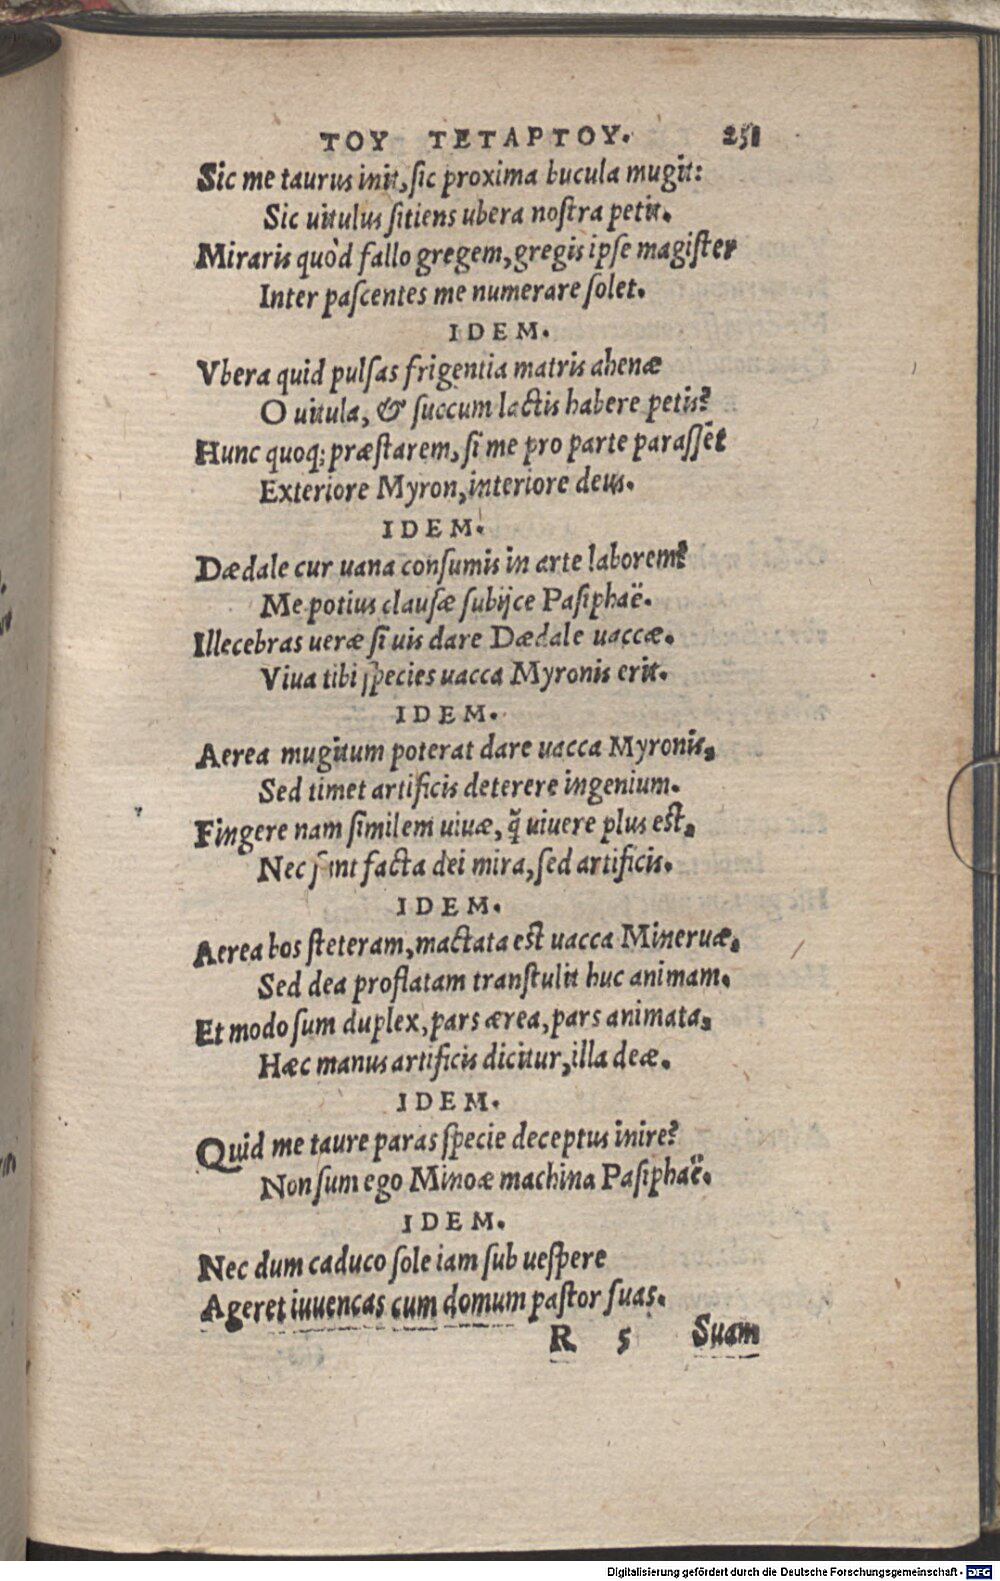 ΤΟΥ ΤΕΤΑΡΤΟΥ. 251
Sic me taurus init, ſic proxima bucula mugit:
Sic uitulus ſitiens ubera noſtra petit.
Miraris quòd fallo gregem, gregis ipſe magiſter
Inter paſcentes me numerare ſolet.
IDEM.
Vbera quid pulſas frigentia matris ahenæ
O uitula, & ſuccum lactis habere petis?
Hunc quoq; præſtarem, ſi me pro parte paraſſet
Exteriore Myron, interiore deus.
IDEM.
Dædale cur uana conſumis in arte laborem?
Me potius clauſæ ſubijce Paſiphaë.
Illecebras ueræ ſi uis dare Dædale uaccæ.
Viua tibi ſpecies uacca Myronis erit.
IDEM.
Aerea mugitum poterat dare uacca Myronis,
Sed timet artificis deterere ingenium.
Fingere nam ſimilem uiuæ, q̃ uiuere plus eſt,
Nec ſunt facta dei mira, ſed artificis.
IDEM.
Aerea bos ſteteram, mactata eſt uacca Mineruæ,
Sed dea proflatam tranſtulit huc animam.
Et modo ſum duplex, pars ærea, pars animata,
Hæc manus artificis dicitur, illa deæ.
IDEM.
Quid me taure paras ſpecie deceptus inire?
Non ſum ego Minoæ machina Paſiphaë.
IDEM.
Nec dum caduco ſole iam ſub ueſpere
Ageret iuuencas cum domum paſtor ſuas.
R 5 Suam
Digitalisierung gefördert durch die Deutsche Forschungsgemeinschaft - DFG